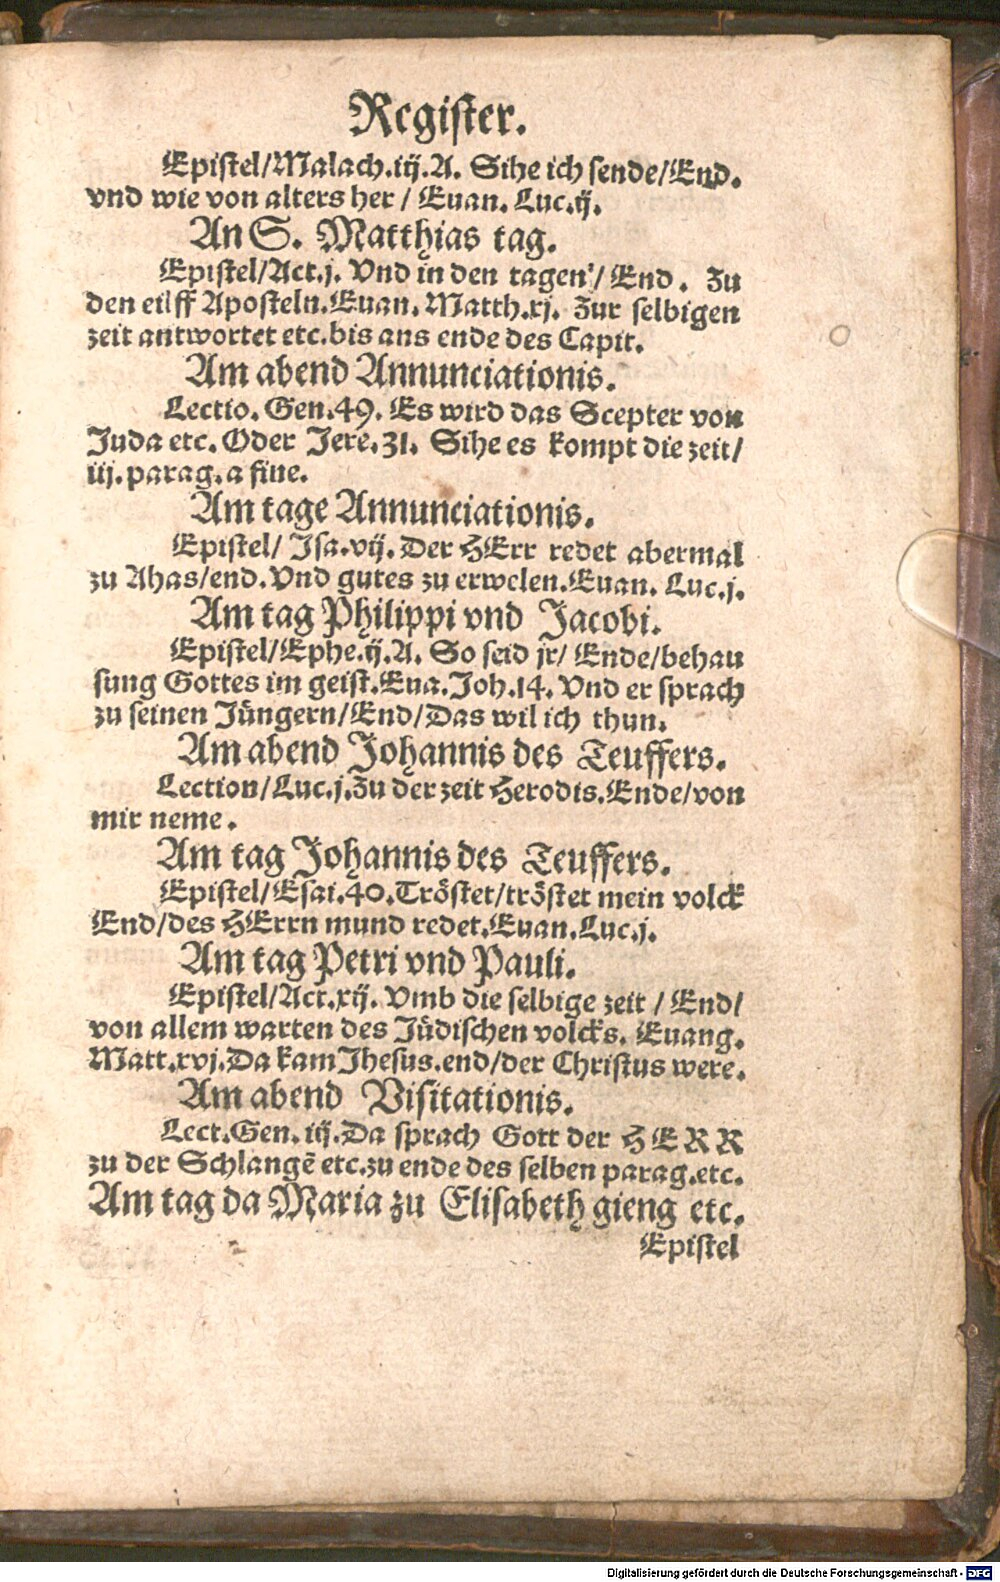 Register.
Epistel/Malach.iij.A. Sihe ich sende/End.
vnd wie von alters her / Euan. Luc.ij.
An S. Matthias tag.
Epistel/Act.j. Vnd in den tagen / End. Zu
den eilff Aposteln.Euan. Matth.xj. Zur selbigen
zeit antwortet etc.bis ans ende des Capit.
Am abend Annunciationis.
Lectio. Gen.49. Es wird das Scepter von
Juda etc. Oder Jere.31. Sihe es kompt die zeit/
iij.parag.a fine.
Am tage Annunciationis.
Epistel/ Isa.vij. Der HErr redet abermal
zu Ahas/end.Vnd gutes zu erwelen.Euan. Luc.j.
Am tag Philippi vnd Jacobi.
Epistel/Ephe.ij.A. So seid jr/ Ende/behau
sung Gottes im geist.Eua.Joh.14. Vnd er sprach
zu seinen Jüngern/End/Das wil ich thun.
Am abend Johannis des Teuffers.
Lection/Luc.j.Zu der zeit Herodis.Ende/von
mir neme.
Am tag Johannis des Teuffers.
Epistel/Esai.40.Tröstet/tröstet mein volck
End/des HErrn mund redet.Euan.Luc.j.
Am tag Petri vnd Pauli.
Epistel/Act.xij. Vmb die selbige zeit / End/
von allem warten des Jüdischen volcks. Euang.
Matt.xvj.Da kam Jhesus.end/der Christus were.
Am abend Visitationis.
Lect.Gen.iij.Da sprach Gott der HERR
zu der Schlangē etc.zu ende des selben parag.etc.
Am tag da Maria zu Elisabeth gieng etc.
Epistel
Digitalisierung gefördert durch die Deutsche Forschungsgemeinschaft - DFG